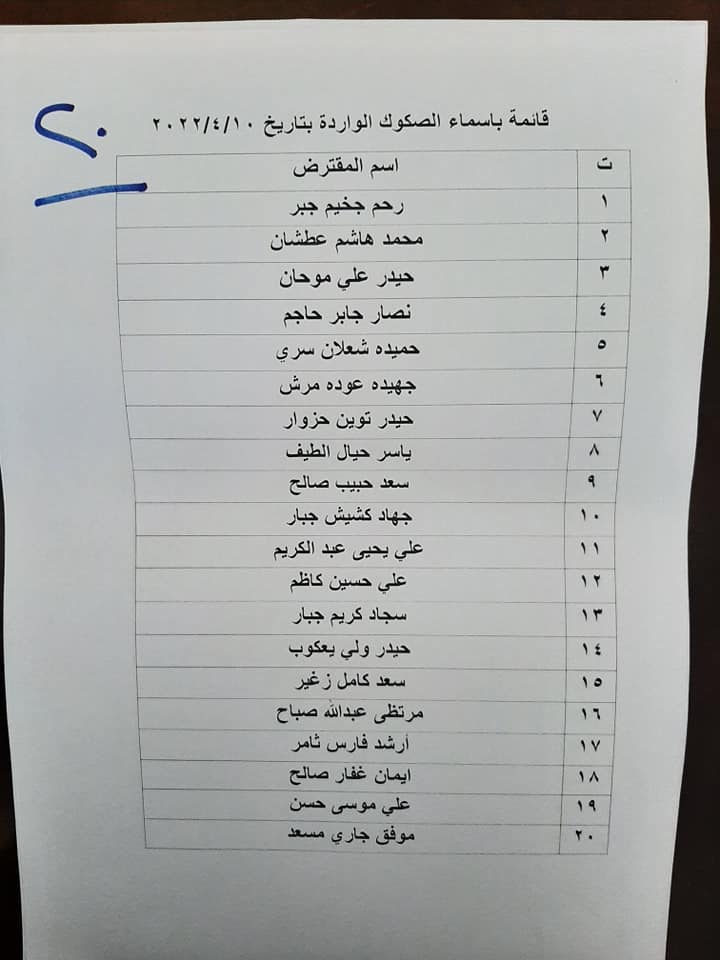 ٢٠
قائمة باسماء الصكوك الواردة بتاريخ ٢٠٢٢/٤/١٠
ت اسم المقترض
١ رحم جخيم جبر
٢ محمد هاشم عطشان
٣ حيدر علي موحان
٤ نصار جابر حاجم
٥ حميده شعلان سري
٦ جهيده عوده مرش
٧ حيدر توين حزوار
٨ ياسر حيال الطيف
٩ سعد حبيب صالح
١٠ جهاد كشيش جبار
١١ علي يحيى عبد الكريم
١٢ علي حسين كاظم
١٣ سجاد كريم جبار
١٤ حيدر ولي يعكوب
١٥ سعد كامل زغير
١٦ مرتظى عبدالله صباح
١٧ أرشد فارس ثامر
١٨ ايمان غفار صالح
١٩ علي موسى حسن
٢٠ موفق جاري مسعد